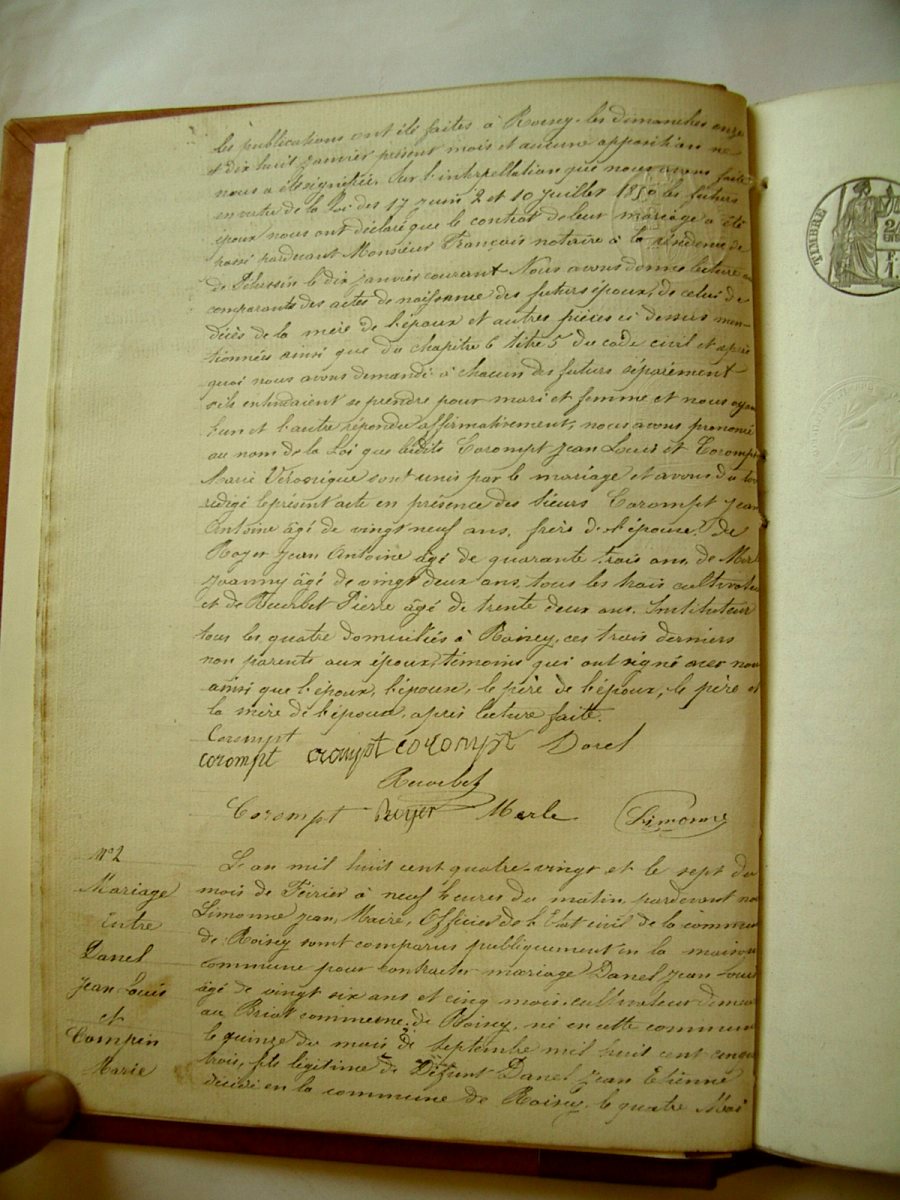 les publications ont été faites à Roisey les dimanches onze
et dix huit janvier présent mois et aucune opposition ne
nous a été signifiée. Sur l'interpellation que nous avons faite
en vertu de la loi des 17 juin, 2 et 10 juillet 1850 les futurs
époux nous ont déclaré que le contrat de leur mariage a été
passé pardevant Monsieur François notaire à la résidence de
de Pélussin le dix janvier courant. Nous avons donné lecture aux
comparants des actes de naissance des futurs époux, de celui de
décès de la mère de l'époux et autres pièces ci dessus men-
tionnées ainsi que du chapitre 6 titre 5 du code civil et après
quoi nous avons demandé à chacun des futurs séparément
s'ils entendaient se prendre pour mari et femme et nous ayant
l'un et l'autre répondu affirmativement, nous avons prononcé
au nom de la Loi que lesdits Corompt Jean Louis et Corompt
Marie Véronique sont unis par le mariage et avons du tout
redigé le présent acte en présence des sieurs Corompt Jean
Antoine âgé de vingt neuf ans, frère de l'épouse, de
Royer Jean Antoine âgé de quarante trois ans, de Merle
Joanny âgé de vingt deux ans, tous les trois cultivateurs
et de Pierre âgé de trente deux ans, Instituteur
tous les quatre domiciliés à Roisey, ces trois derniers
non parents aux époux, témoins qui ont signé avec nous
ainsi que l'époux, l'épouse, le père de l'époux, le père et
la mère de l'épouse, après lecture faite.
Corompt
corompt corompt corompt Dorel
Corompt Royer Merle Limonne
TIMBRE
N° 2
Mariage
Entre
Danel
Jean Louis
et
Compin
Marie
L'an mil huit cent quatre-vingt et le sept du
mois de Février à neuf heures du matin, pardevant nous
Limonne Jean, Maire, Officier de l'Etat civil de la commune
de Roisey sont comparus publiquement en la maison
commune pour contracter mariage Danel Jean Louis
âgé de vingt six ans et cinq mois, cultivateur demeurant
au Briat commune de Roisey, né en cette commune
le quinze du mois de Septembre mil huit cent cinquante
trois, fils légitime de Défunt Danel Jean Etienne
décédé en la commune de Roisey le quatre Mai